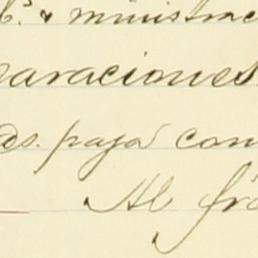 & ministrac
araciones
as. paja con
Al fr